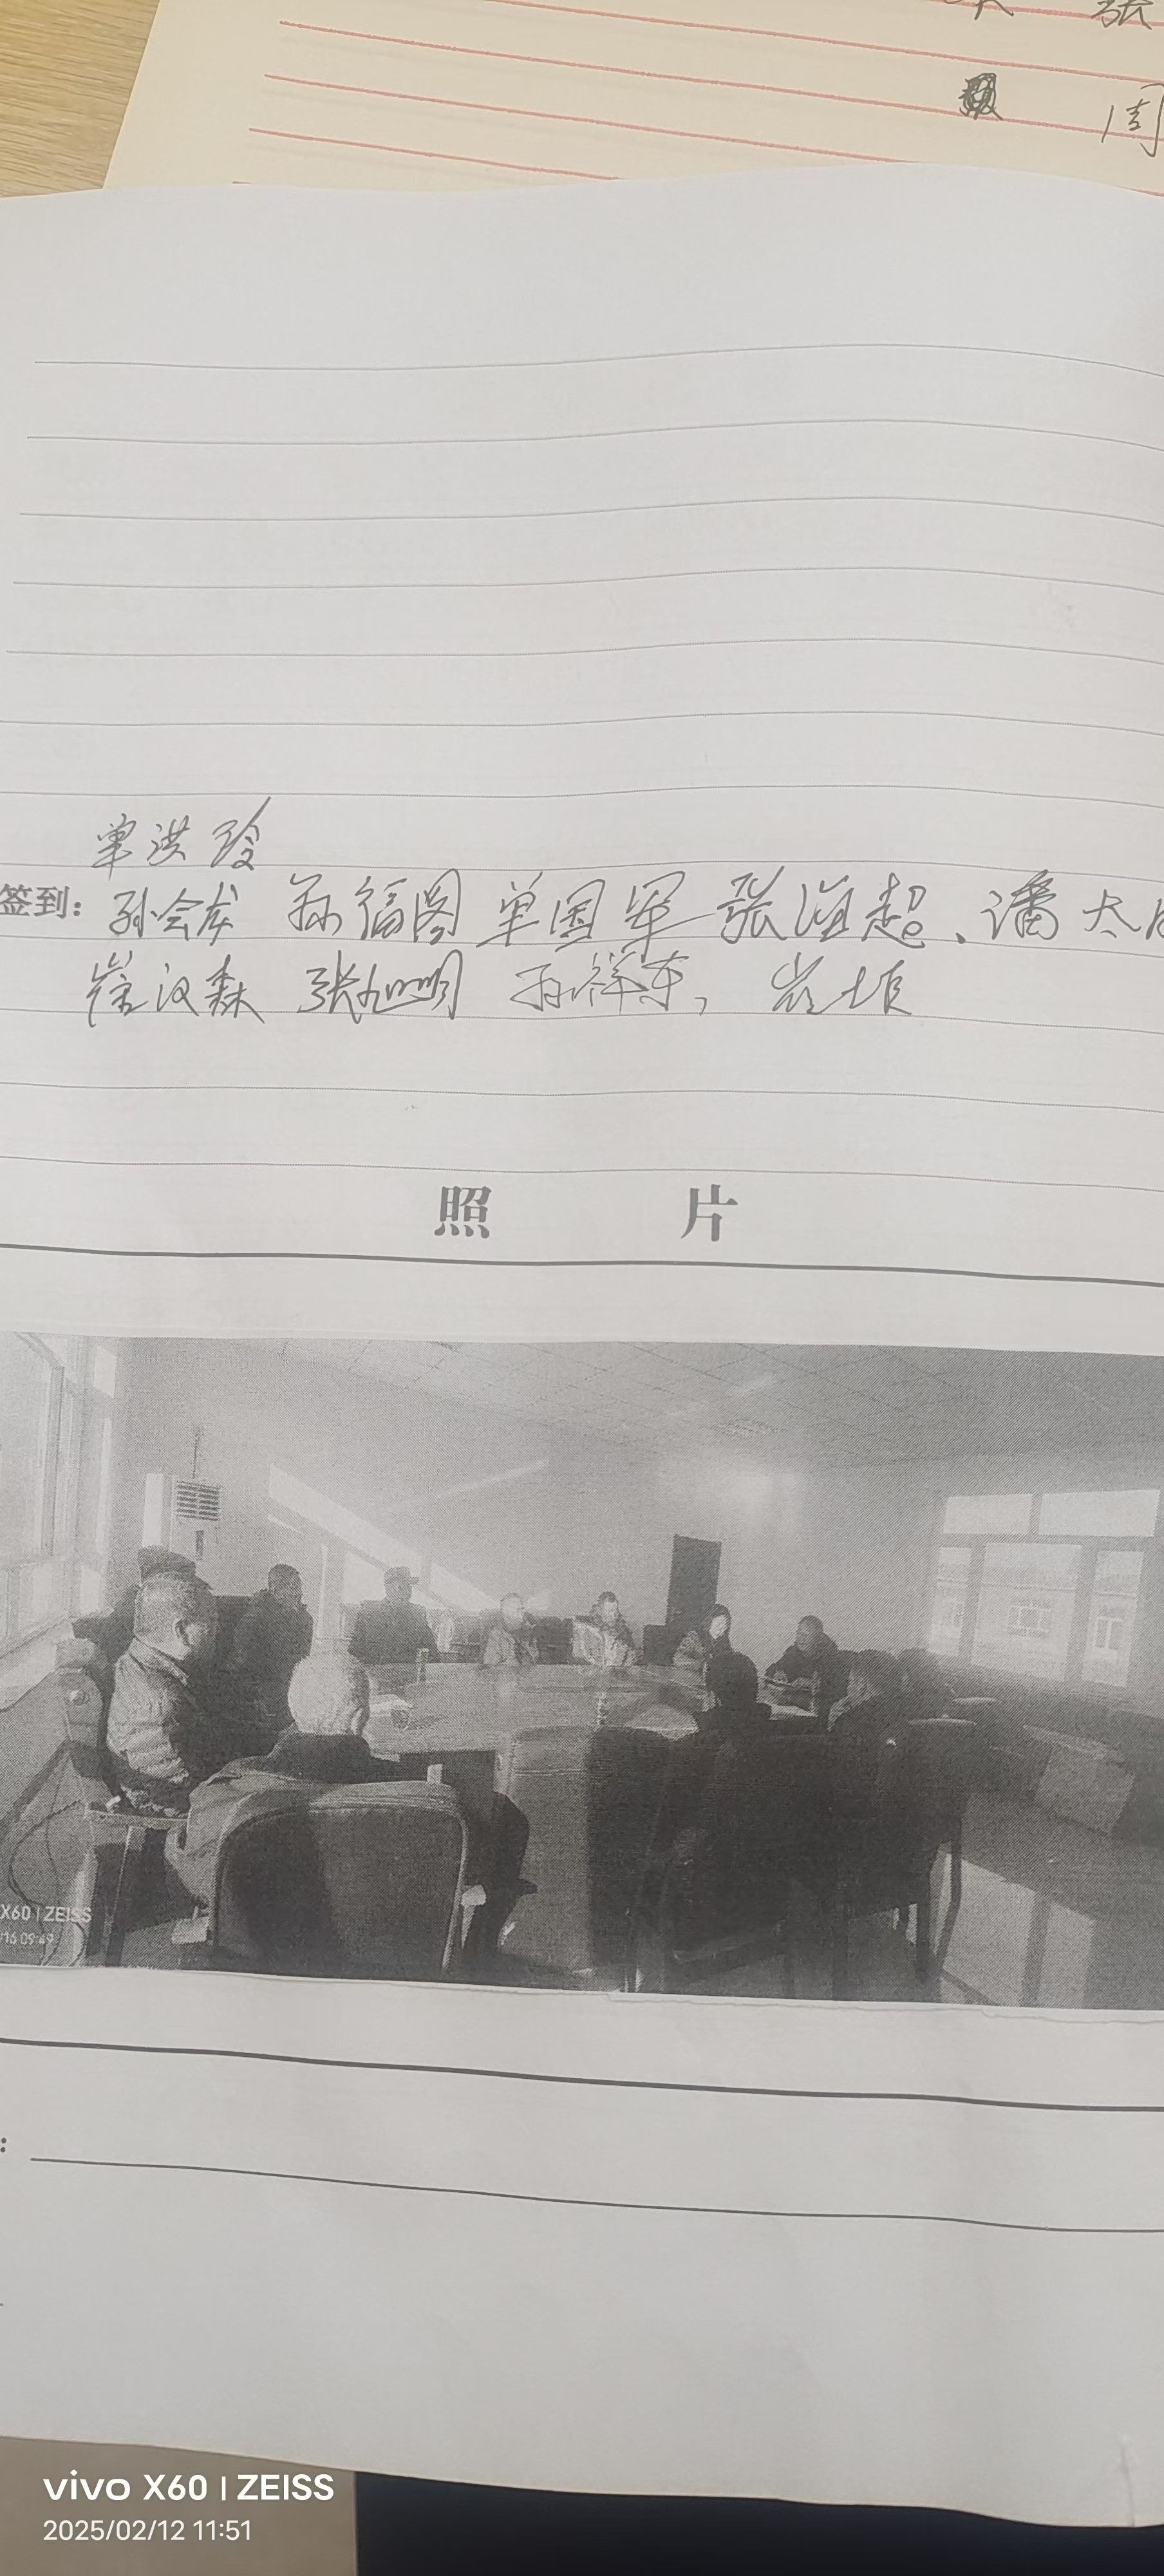 张
周
单洪玲
签到: 孙会成 孙福图 单国军 张海超、潘太
崔汉森 张旭明 孙祥东,
照 片
X60 | ZEISS
/16 09:49
:
vivo X60 | ZEISS
2025/02/12 11:51